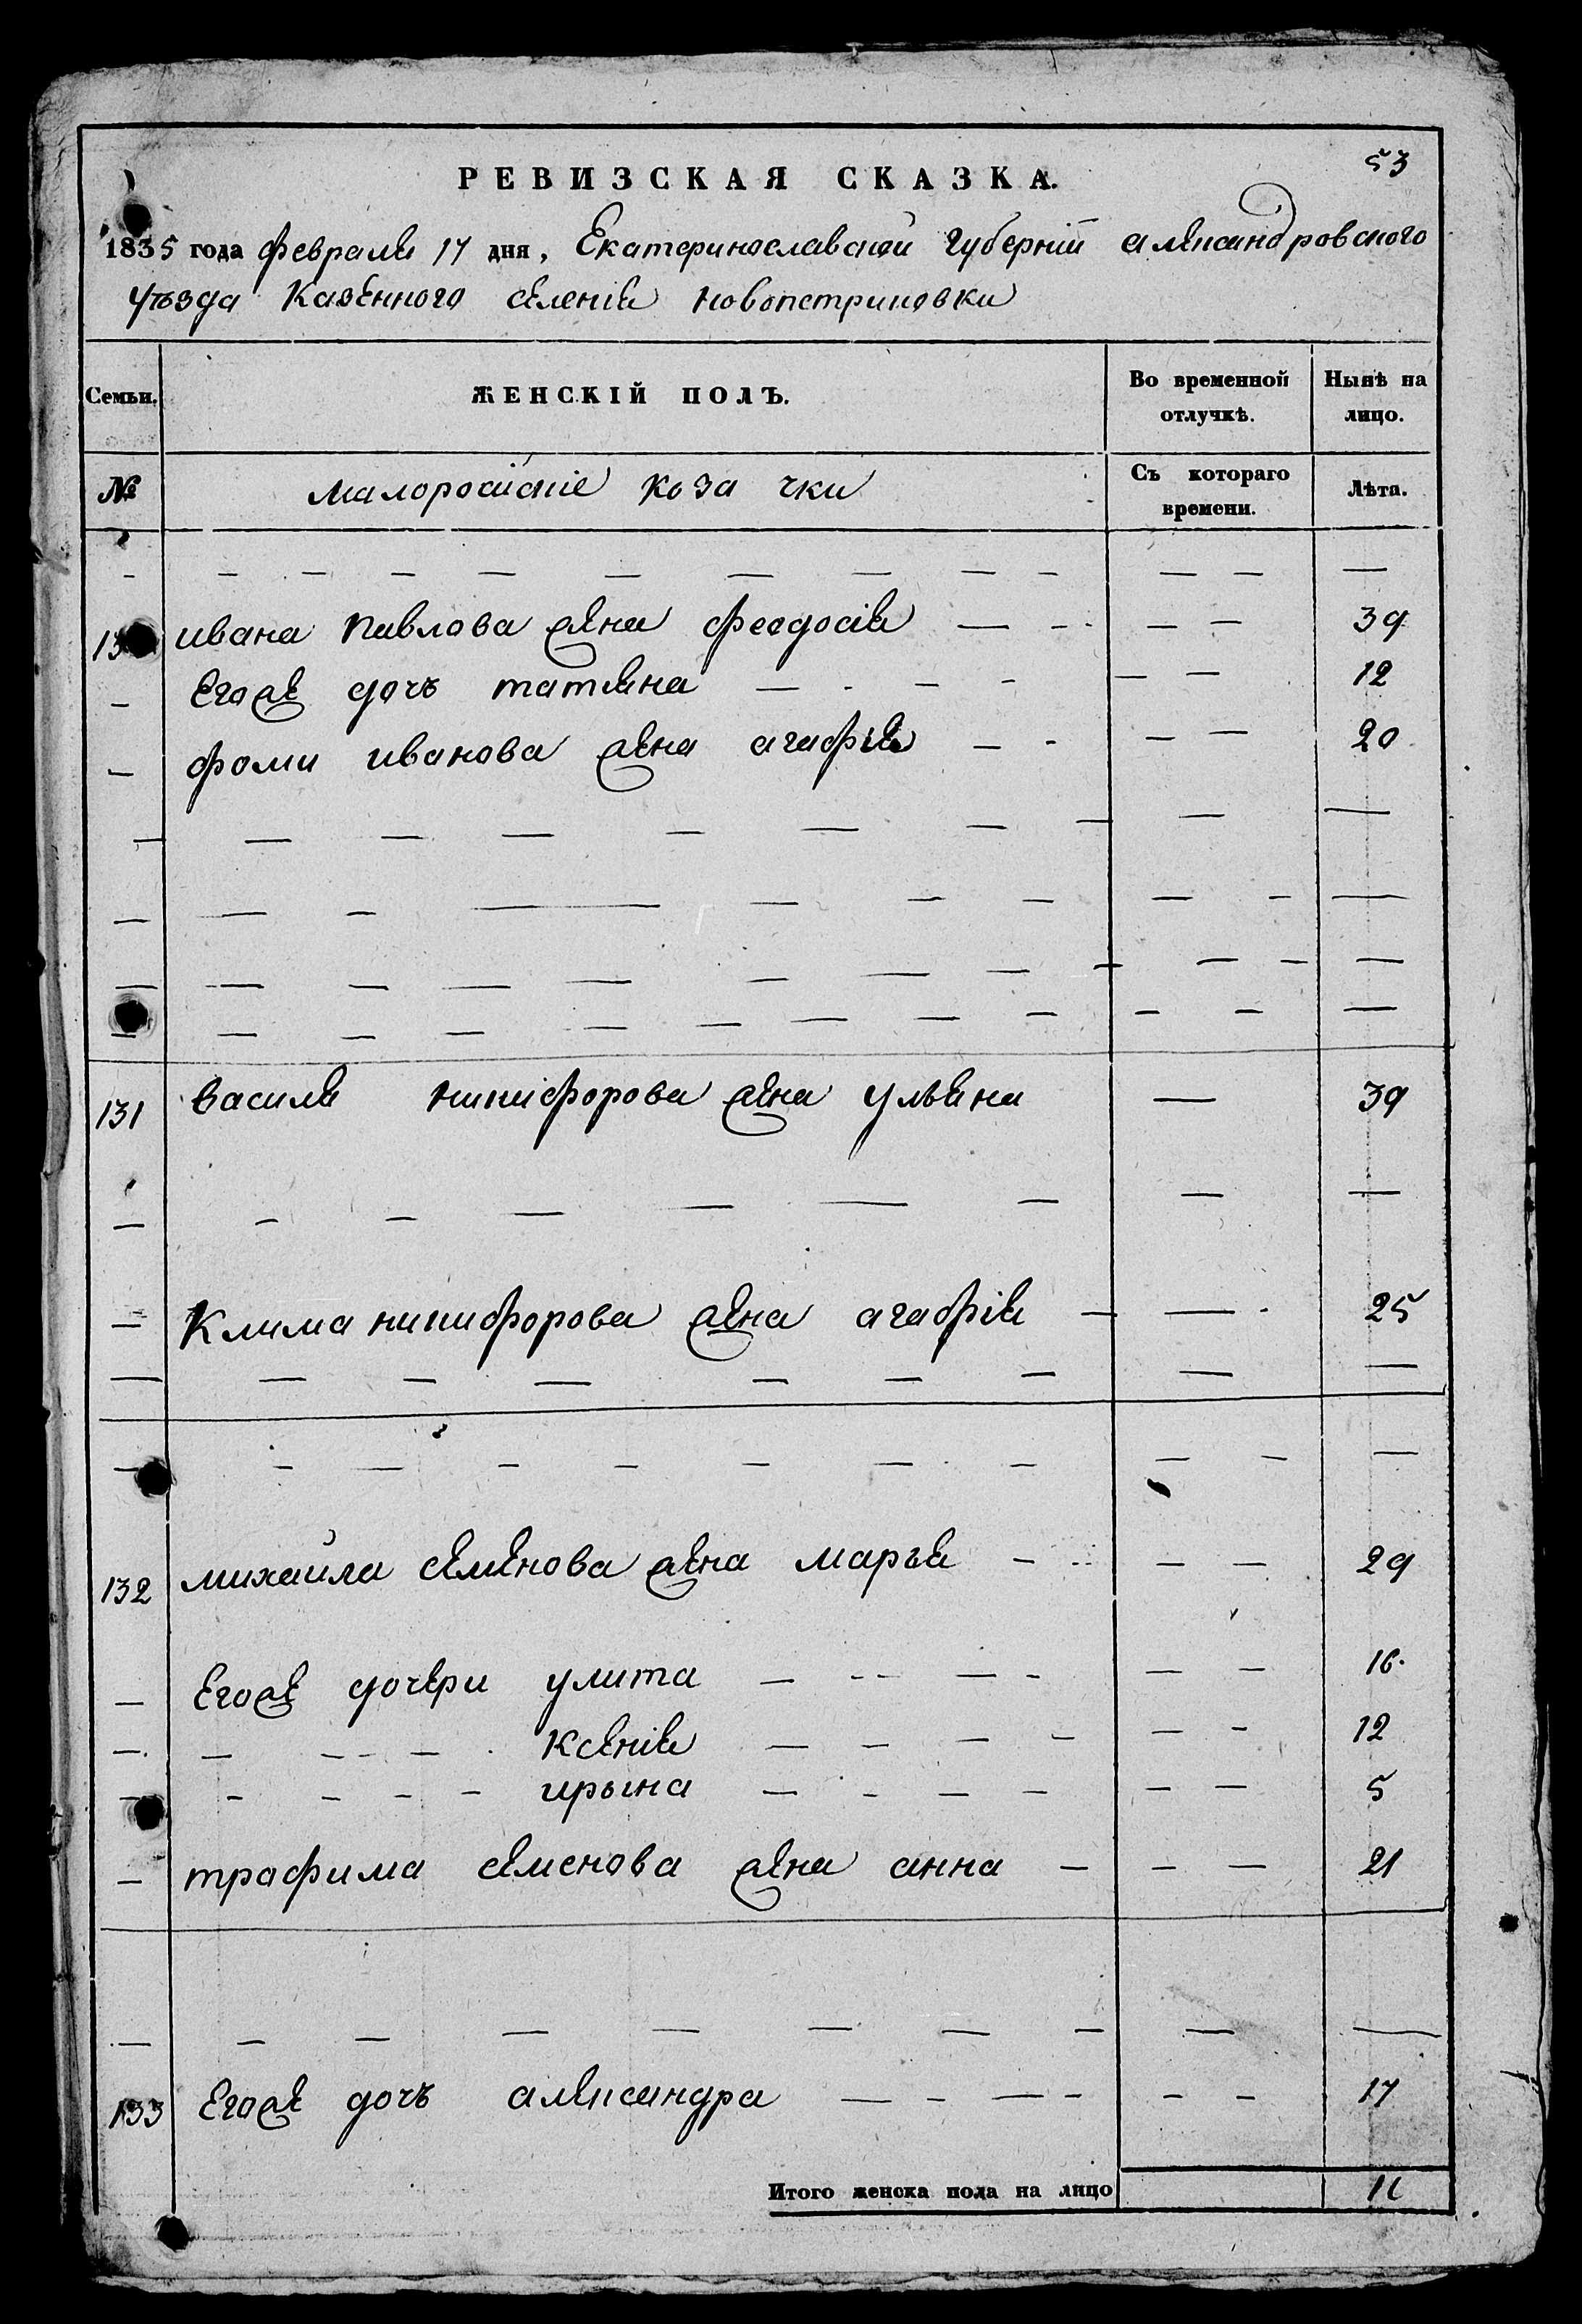 53
РЕВИЗСКАЯ СКАЗКА.
1835 года февраля 17 дня, Екатеринославской губернїи александровского
уѣзда Казенного селенія новопетриковки
Семьи. ЖЕНСКІЙ ПОЛЪ. Во временной отлучкѣ. Нынѣ на лицо.
№ малоросійскіе козачки Съ котораго времени. Лѣта.
ивана павлова жена феодосія 39
Егоже дочь татяна 12
фоми иванова жена агафія 20
131 василя никифорова жена ульяна 39
Клима никифорова жена агафія 25
132 михайла семенова жена марья 29
Егоже дочери улита 16
Ксенія 12
ирына 5
трофима семенова жена анна 21
133 Егоже дочь александра 17
Итого женска пола на лицо 11